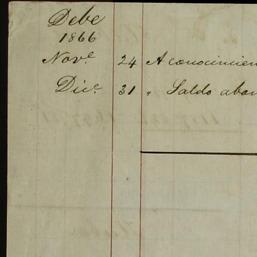 Debe
1866
Nov.e 24 A conocimien
Dic.e 31 " Saldo abon